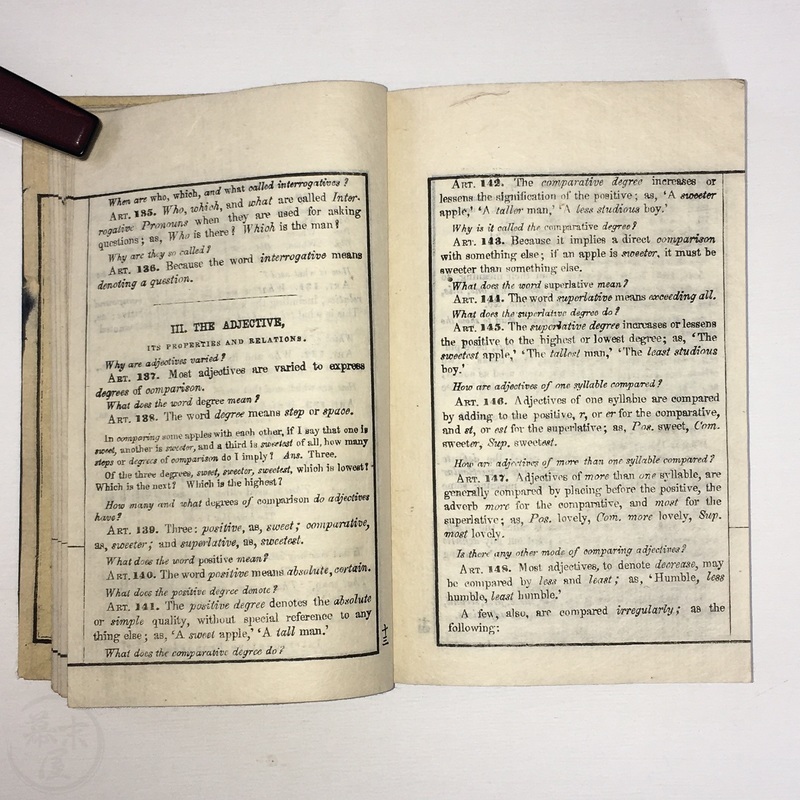 When are who, which, and what called interrogatives?
ART. 135. Who, which, and what are called Inter-
rogative Pronouns when they are used for asking
questions; as, Who is there? Which is the man?
Why are they so called?
ART. 136. Because the word interrogative means
denoting a question.
III. THE ADJECTIVE,
ITS PROPERTIES AND RELATIONS.
Why are adjectives varied?
ART. 137. Most adjectives are varied to express
degrees of comparison.
What does the word degree mean?
ART. 138. The word degree means step or space.
In comparing some apples with each other, if I say that one is
sweet, another is sweeter, and a third is sweetest of all, how many
steps or degrees of comparison do I imply? Ans. Three.
Of the three degrees, sweet, sweeter, sweetest, which is lowest?
Which is the next? Which is the highest?
How many and what degrees of comparison do adjectives
have?
ART. 139. Three: positive, as, sweet; comparative,
as, sweeter; and superlative, as, sweetest.
What does the word positive mean?
ART. 140. The word positive means absolute, certain.
What does the positive degree denote?
ART. 141. The positive degree denotes the absolute
or simple quality, without special reference to any
thing else; as, 'A sweet apple,' 'A tall man.'
What does the comparative degree do?
十三
ART. 142. The comparative degree increases or
lessens the signification of the positive; as, 'A sweeter
apple,' 'A taller man,' 'A less studious boy.'
Why is it called the comparative degree?
ART. 143. Because it implies a direct comparison
with something else; if an apple is sweeter, it must be
sweeter than something else.
What does the word superlative mean?
ART. 144. The word superlative means exceeding all.
What does the superlative degree do?
ART. 145. The superlative degree increases or lessens
the positive to the highest or lowest degree; as, 'The
sweetest apple,' 'The tallest man,' 'The least studious
boy.'
How are adjectives of one syllable compared?
ART. 146. Adjectives of one syllable are compared
by adding to the positive, r, or er for the comparative,
and st, or est for the superlative; as, Pos. sweet, Com.
sweeter, Sup. sweetest.
How are adjectives of more than one syllable compared?
ART. 147. Adjectives of more than one syllable, are
generally compared by placing before the positive, the
adverb more for the comparative, and most for the
superlative; as, Pos. lovely, Com. more lovely, Sup.
most lovely.
Is there any other mode of comparing adjectives?
ART. 148. Most adjectives, to denote decrease, may
be compared by less and least; as, 'Humble, less
humble, least humble.'
A few, also, are compared irregularly; as the
following: